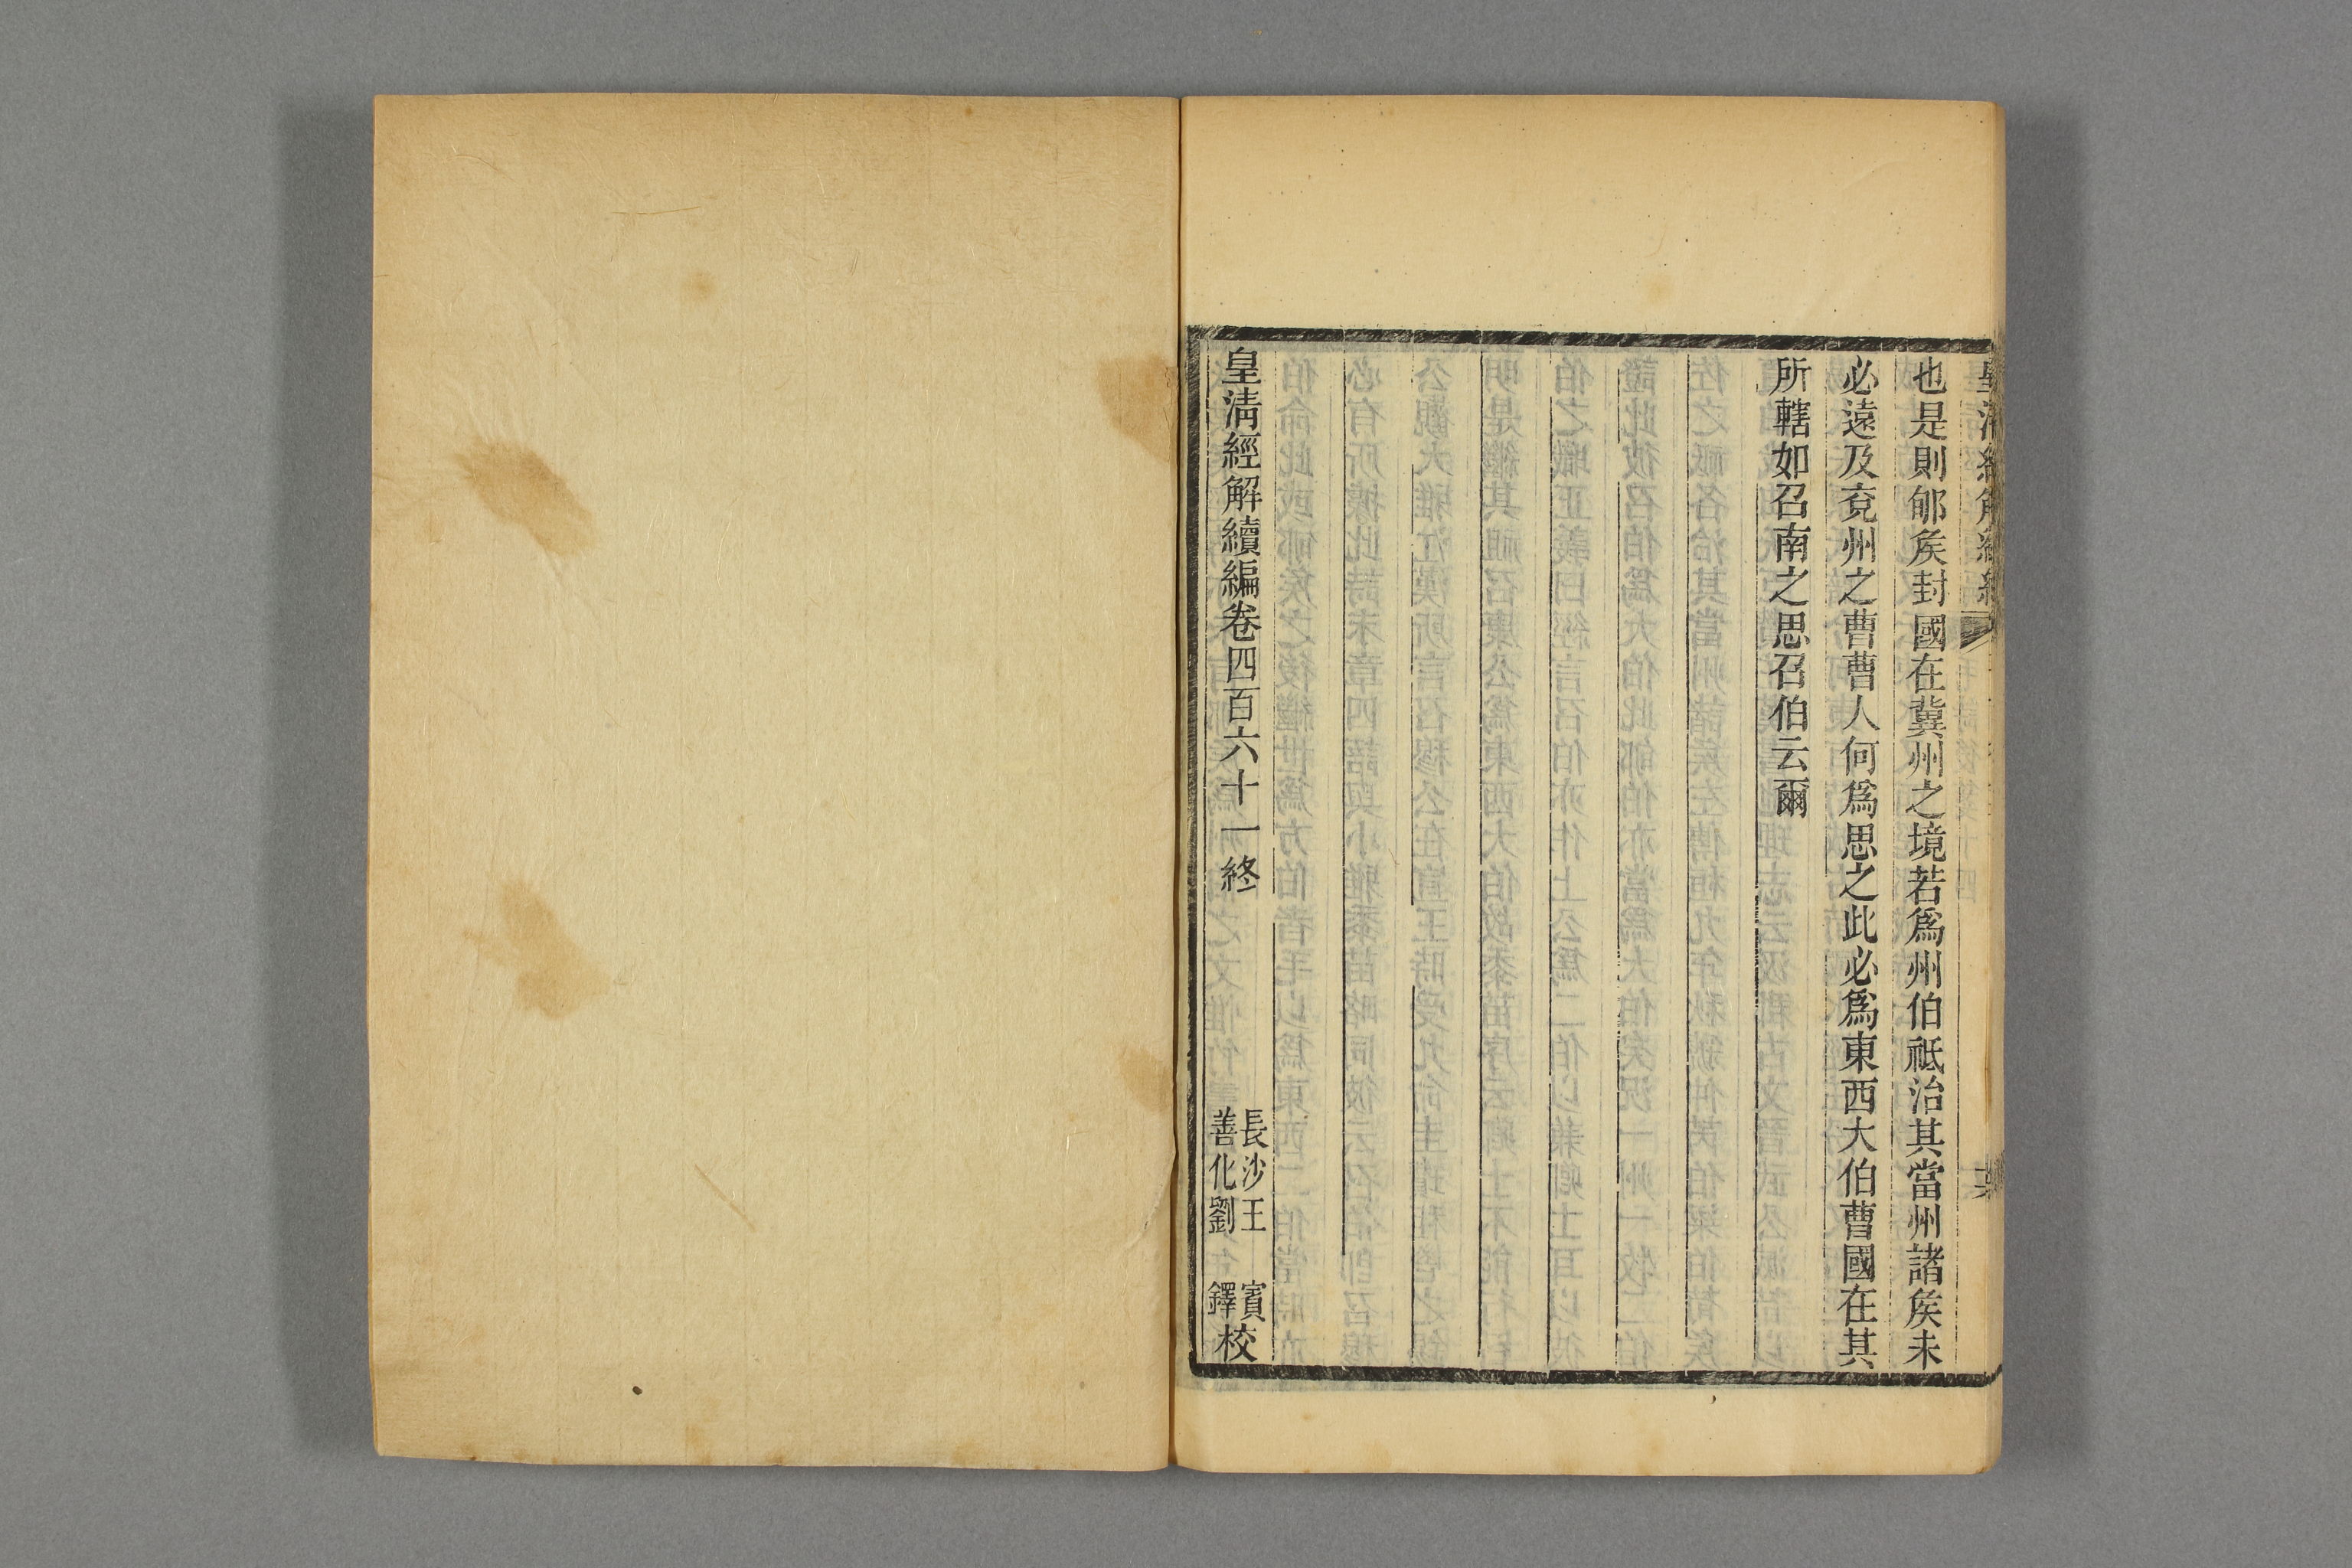 也是則郇矦封國在冀州之境若爲州伯祗治其當州諸矦未
必遠及兗州之曹曹人何爲思之此必爲東西大伯曹國在其
所轄如召南之思召伯云爾
皇淸經解續編卷四百六十一終
長沙王 賓
善化劉 鐸
校